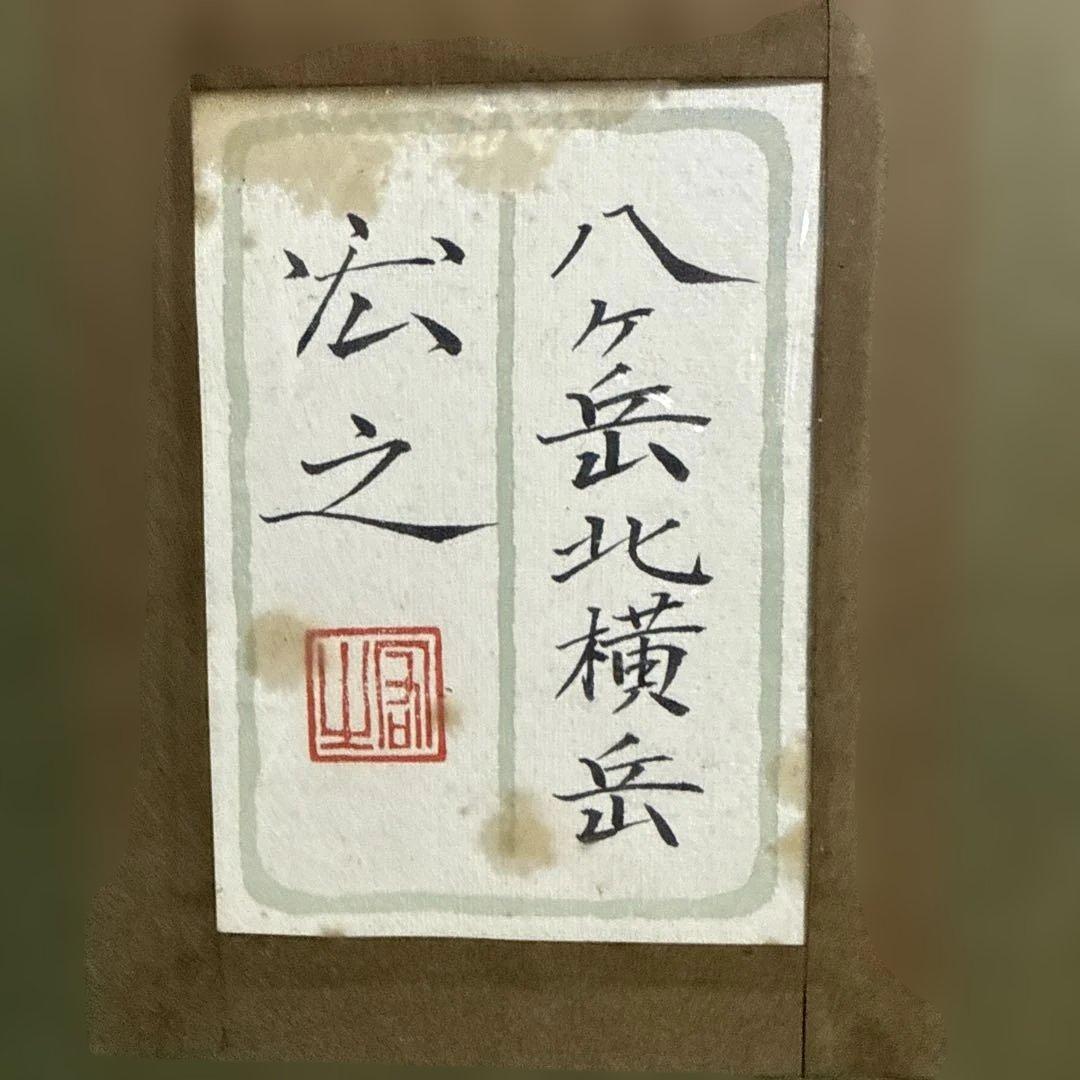 八ヶ岳北横岳
宏之